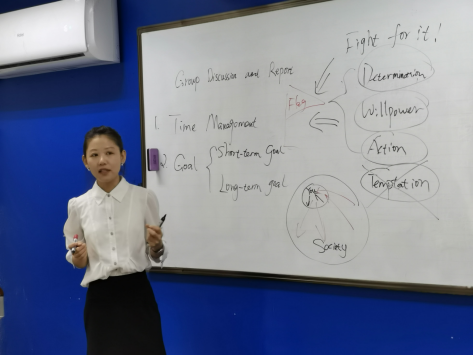 Fight for it!
Group Discussion and Report
Determination
Flag
Willpower
1. Time Management
Action
2. Goal
Short-term goal
Long-term goal
Temptation
you
Society